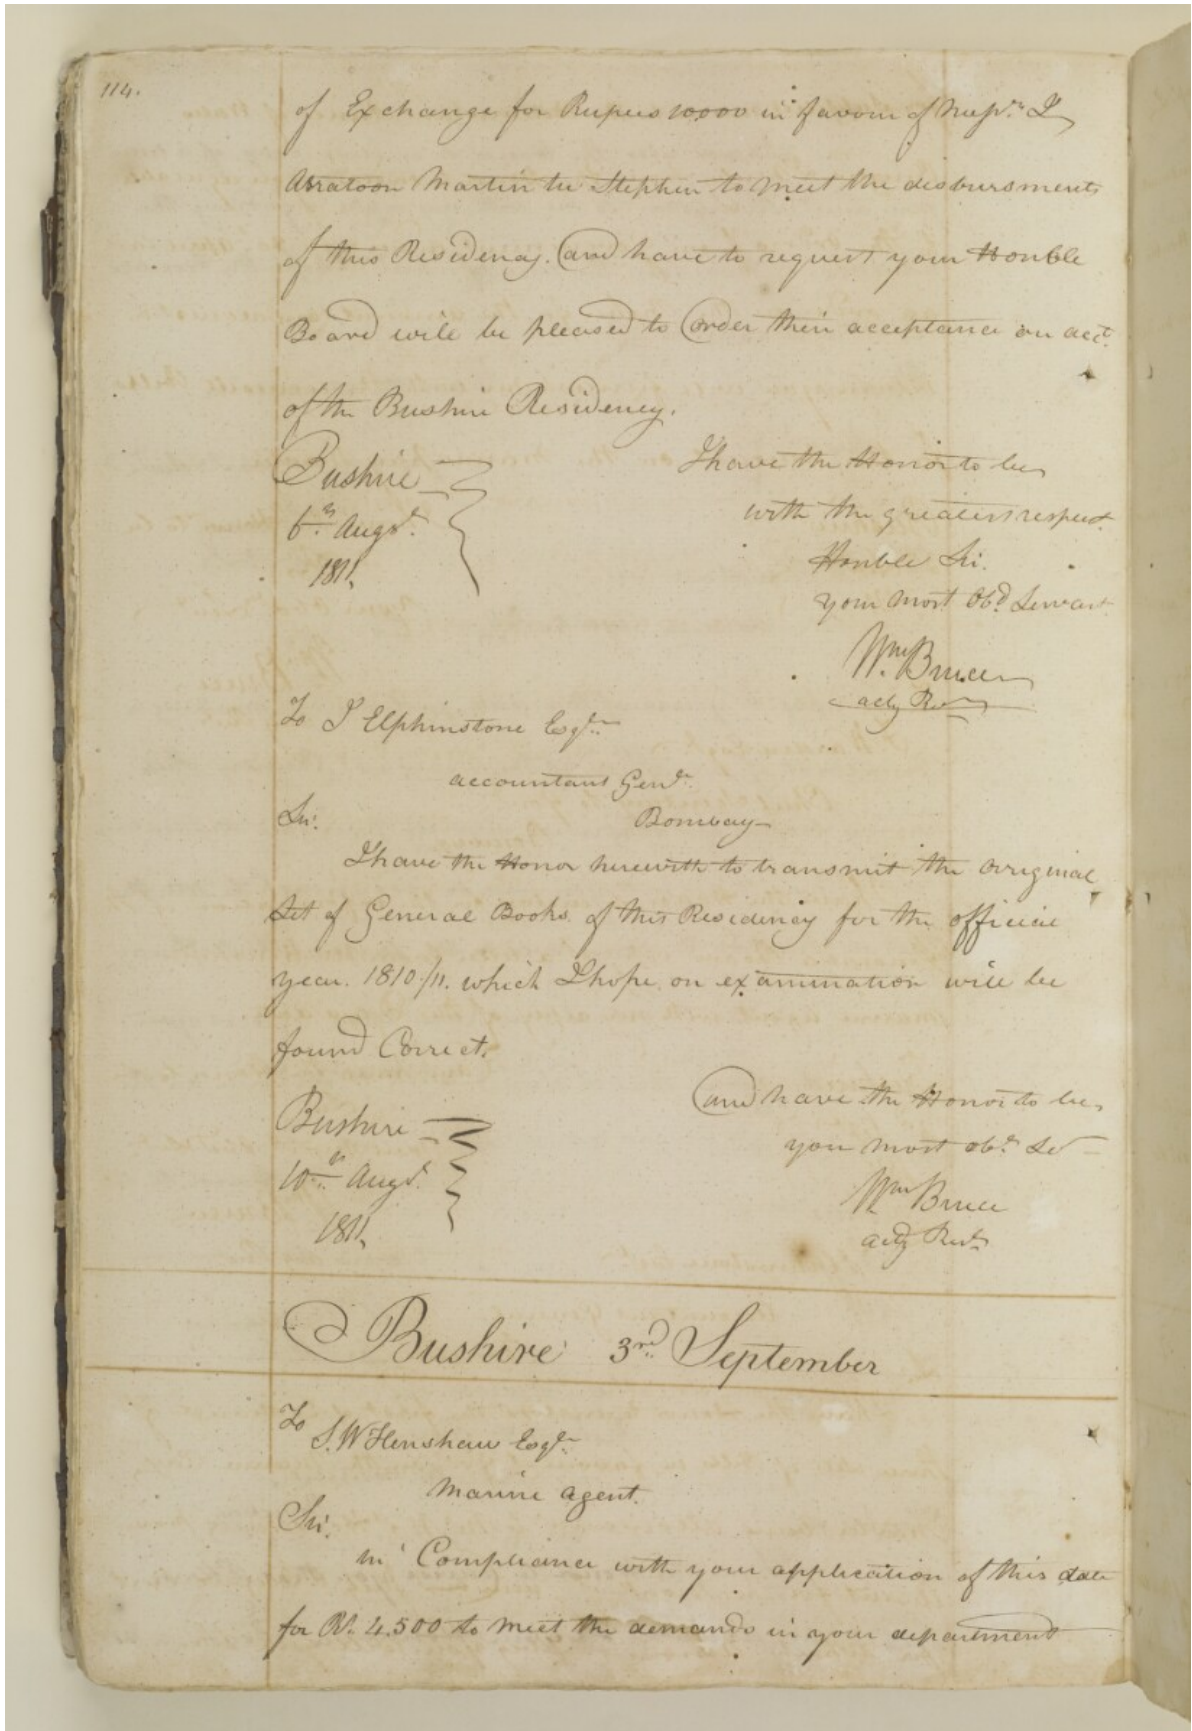 114.
of Exchange for Rupees 10,000 in favour of Messrs. I
Arratoon Martin ter Stephen to meet the disbursments
of this Residency. and have to request your Honble
Board will be pleased to order their acceptance on acct.
of the Bushire Residency.
Bushire
6th Augst.
1811.
I have the Honor to be
with the greatest respect
Honble Sir.
your most Obd Servant
Wm. Bruce
actg Rest
To J Elphinstone Esqr.
accountant Genl.
Sir. Bombay
I have the Honor herewith to transmit the original
Set of General Books of this Residency for the official
year. 1810/11. which I hope on examination will be
found Correct.
Bushire
10th Augst.
1811.
and have the Honor to be
you most obt. St
Wm Bruce
actg Rest.
Bushire 3rd. September
To
S.W Henshaw Esqr.
Marine Agent.
Sir.
In Compliance with your application of this date
for Rs. 4.500 to meet the demands in your department